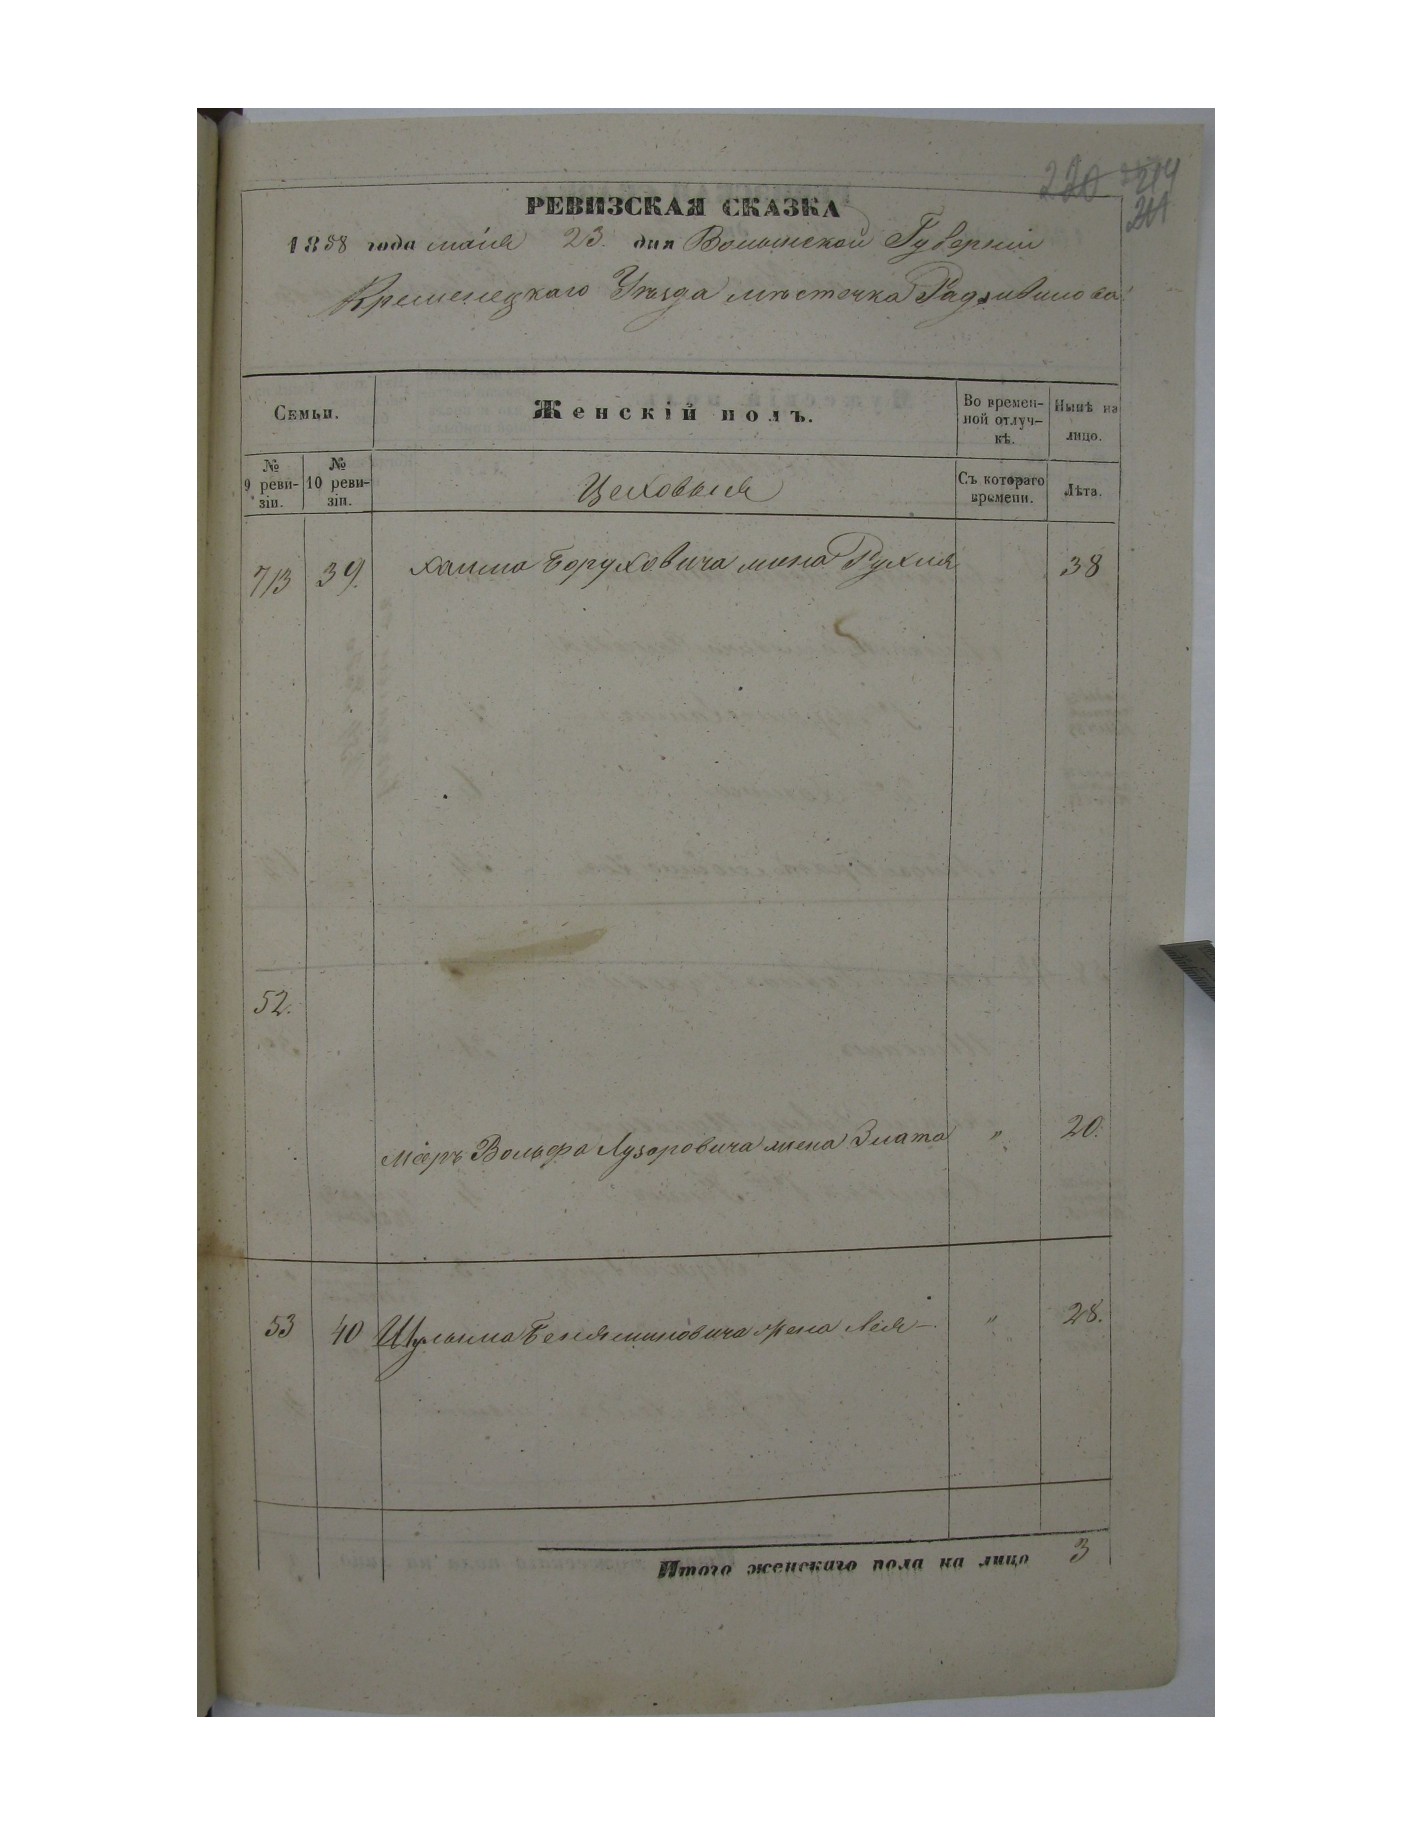 220 214
211
РЕВИЗСКАЯ СКАЗКА
1858 года маія 23. дня Волынской Губерніи
Кременецкаго Уѣзда мѣстечка Радзивилова
Семьи.
Женскій полъ.
Во времен-
ной отлуч-
кѣ.
Нынѣ на
лицо.
№
9 реви-
зіи.
№
10 реви-
зіи.
Цеховыя
Съ котораго
времени.
Лѣта.
713 39. Хаима Боруховича жена Рухля 38
52.
Меер Вольфа Лузеровича жена Злата „ 20.
53 40 Шулима Беняминовича жена Лея „ 28.
Итого женскаго пола на лицо 3